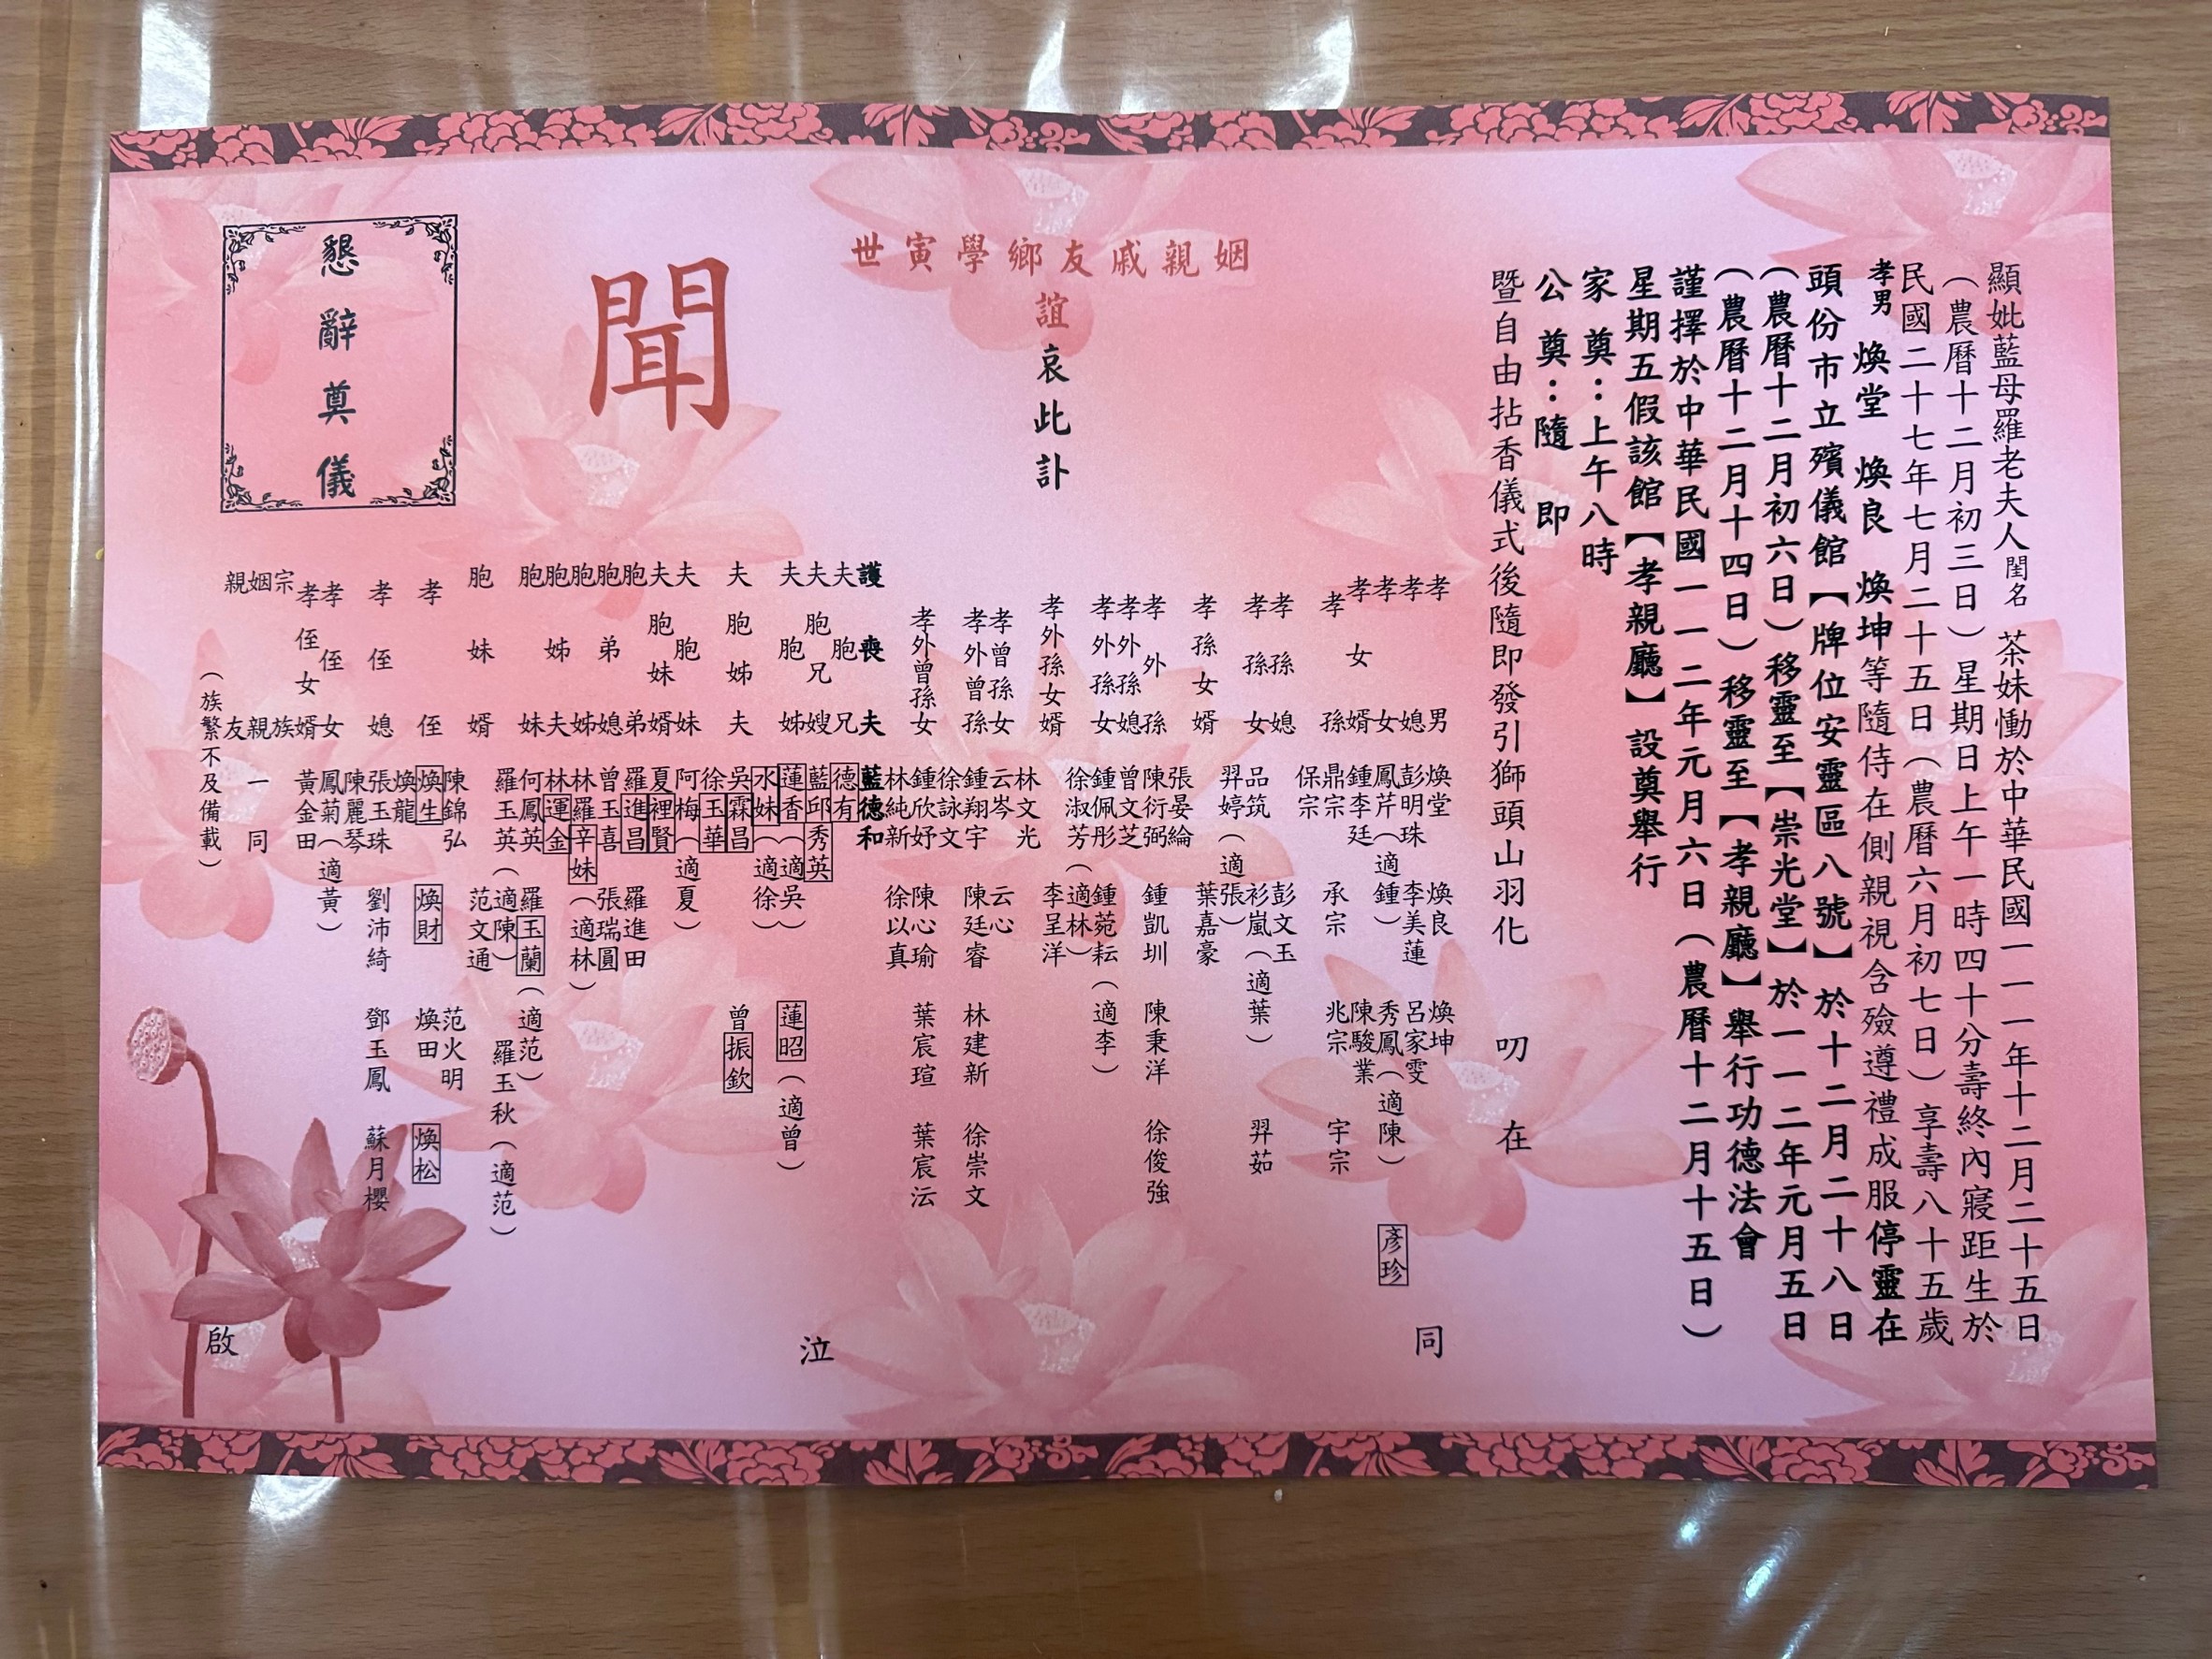 顯妣藍母羅老夫人閨名 茶妹慟於中華民國一一一年十二月二十五日
(農曆十二月初三日)星期日上午一時四十分壽終內寢距生於
民國二十七年七月二十五日(農曆六月初七日)享壽八十五歲
孝男 煥堂 煥良 煥坤等隨侍在側親視含殮遵禮成服停靈在
頭份市立殯儀館【牌位安靈區八號】於十二月二十八日
(農曆十二月初六日)移靈至【崇光堂】於一一二年元月五日
(農曆十二月十四日)移靈至【孝親廳】舉行功德法會
謹擇於中華民國一一二年元月六日(農曆十二月十五日)
星期五假該館【孝親廳】設奠舉行
家奠:上午八時
公奠:隨 即
暨自由拈香儀式後隨即發引獅頭山羽化 叨 在
姻親戚友鄉學寅世
誼哀此訃
聞
懇辭奠儀
孝男 煥堂 煥良 煥坤 同
孝媳 彭明珠 李美蓮 呂家雯
孝女 鳳芹(適鍾) 秀鳳(適陳) 彥珍
孝女婿 鍾李廷 陳駿業
孝孫 鼎宗 保宗 承宗 兆宗 宇宗
孝孫媳 彭文玉
孝孫女 品筑 衫嵐(適葉) 羿茹
羿婷(適張)
孝孫女婿 葉嘉豪
孝外孫 張晏綸 陳衍弼 鍾凱圳 陳秉洋 徐俊強
孝外孫媳 曾文芝
孝外孫女 鍾佩彤 鍾菀耘(適李)
徐淑芳(適林)
孝外孫女婿 林文光 李呈洋
孝曾孫女 云岑 云心
孝外曾孫 鍾翔宇 徐詠文 陳廷睿 林建新 徐崇文
孝外曾孫女 鍾欣妤 林純新 陳心瑜 徐以真 葉宸瑄 葉宸沄
護喪夫 藍德和
夫胞兄 德有
夫胞兄嫂 藍邱秀英
夫胞姊 蓮香(適吳) 水妹(適徐) 蓮昭(適曾) 泣
夫胞姊夫 吳霖昌 徐玉華 曾振欽
夫胞妹 阿梅(適夏)
夫胞妹婿 夏裡賢
胞弟 羅進昌 羅進田
胞弟媳 曾玉喜 張瑞圓
胞姊 林羅辛妹(適林)
胞姊夫 林運金
胞妹 何鳳英 羅玉蘭(適范)
羅玉英(適陳) 羅玉秋(適范)
胞妹婿 陳錦弘 范文通 范火明
孝侄 煥生 煥龍 煥財 煥田 煥松
孝侄媳 張玉珠 陳麗琴 劉沛綺 鄧玉鳳 蘇月櫻
孝侄女 鳳菊(適黃)
孝侄女婿 黃金田
宗族
姻親 一同
親友
(族繁不及備載) 啟